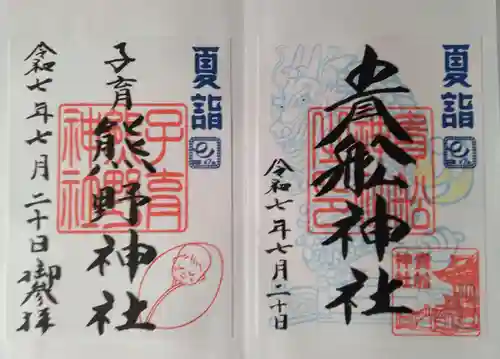 夏詣
子育
熊野神社
令和七年七月二十日
御参拝
子育
熊野
神社
夏詣
貴船神社
令和七年七月二十日